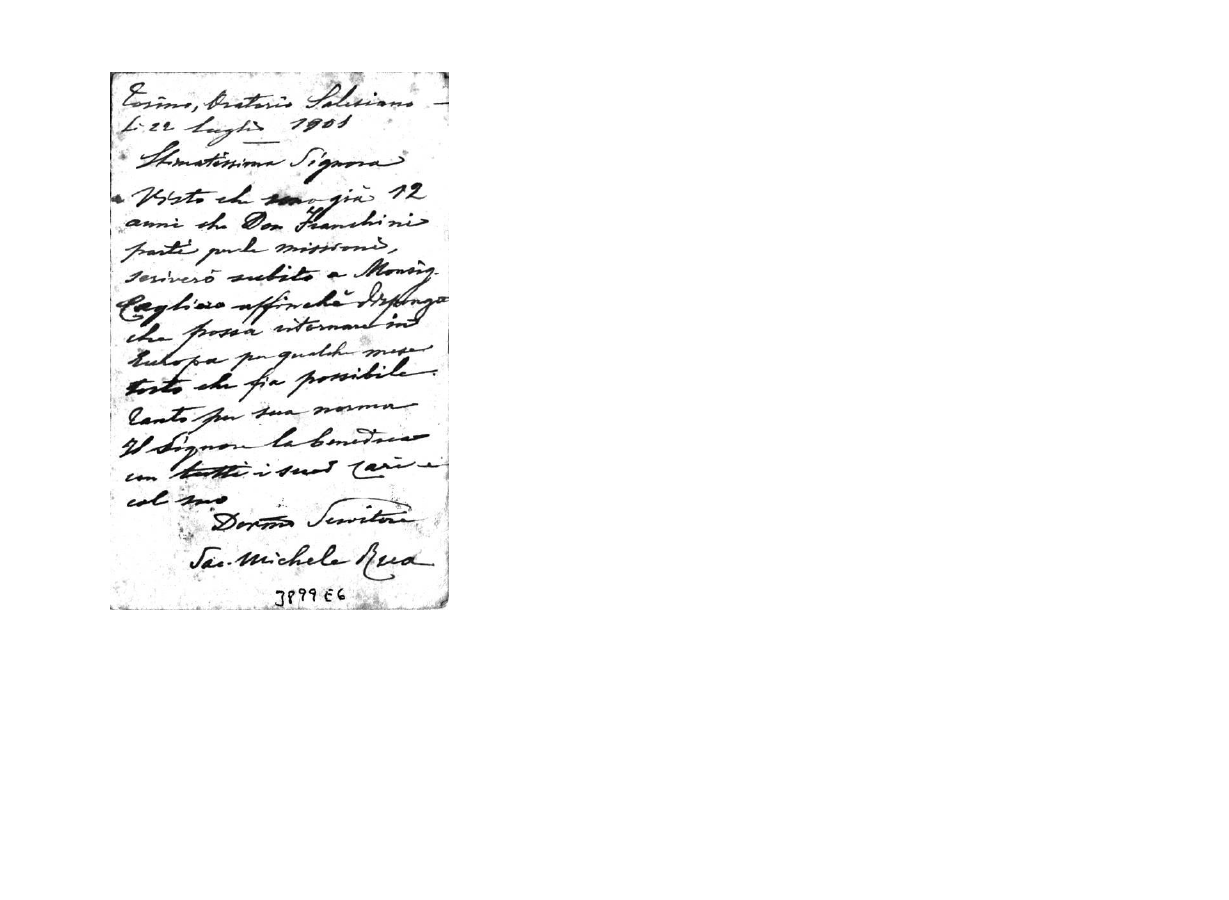 Torino, Oratorio Salesiano —
li 22 luglio 1901
Stimatissima Signora
Visto che sono già 12
anni che Don Franchini
partì per le missioni,
scriverò subito a Monsig.
Cagliero affinchè disponga
che possa ritornare in
Europa per qualche mese
tosto che fia possibile.
Tanto per sua norma
Il Signore la benedica
con tutti i suoi cari e
col suo
Dev.mo Servitore
Sac. Michele Rua
3899 E6